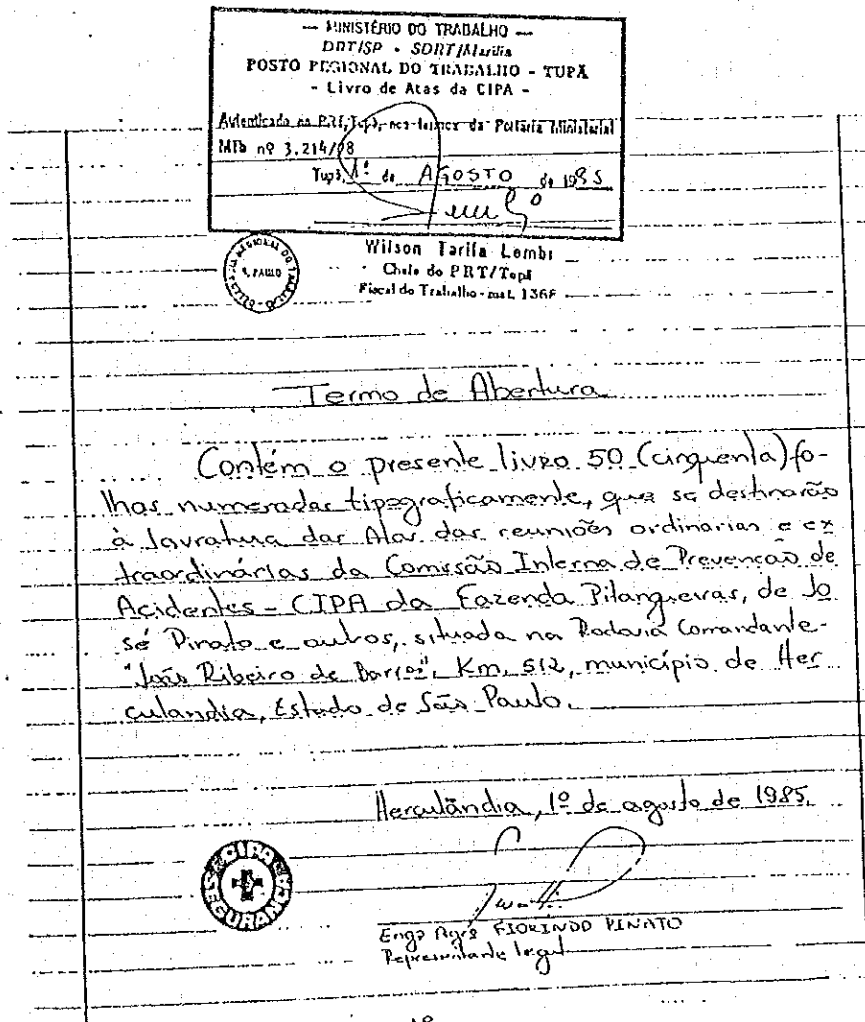 — MINISTÉRIO DO TRABALHO —
DRT/SP - SDRT/Marília
POSTO REGIONAL DO TRABALHO - TUPÃ
- Livro de Atas da CIPA -
Autenticado no PRT/Tupã, nos termos da Portaria Ministerial
MTb nº 3.214/78
Tupã, 1º de AGOSTO de 1985
Wilson Tarifa Lembi
Chefe do PRT/Tupã
Fiscal do Trabalho - mat. 1368
S. PAULO
Termo de Abertura
Contém o presente livro 50 (cinquenta) fo-
lhas numeradas tipograficamente, que se destinarão
à lavratura das Atas das reuniões ordinarias e ex
traordinárias da Comissão Interna de Prevenção de
Acidentes - CIPA da Fazenda Pitangueiras, de Jo
sé Pinato e outros, situada na Rodovia Comandante-
"João Ribeiro de Barros", Km, 512, município de Her
culandia, Estado de São Paulo.
Herculândia, 1º de agosto de 1985.
CIPA
SEGURANÇA
Engº Agrº FIORINDO PINATO
Representante legal